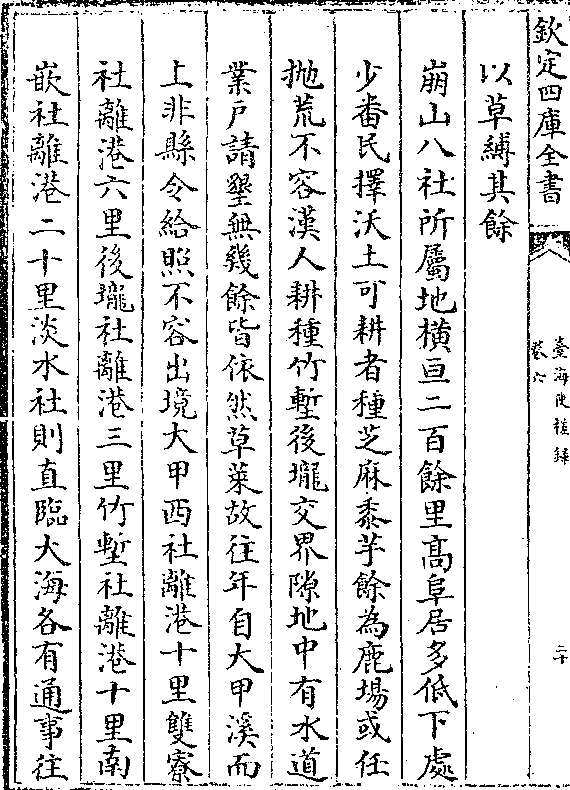 欽定四庫全書
臺海使槎録
卷六
二十
以草縛其餘
崩山八社所屬地横亘二百餘里髙阜居多低下處
少畨民擇沃土可耕者種芝麻黍芋餘為鹿塲或任
抛荒不容漢人耕種竹塹後壠交界隙地中有水道
業户請墾無幾餘皆依然草萊故往年自大甲溪而
上非縣令給照不容出境大甲西社離港十里雙寮
社離港六里後壠社離港三里竹塹社離港十里南
嵌社離港二十里淡水社則直臨大海各有通事往